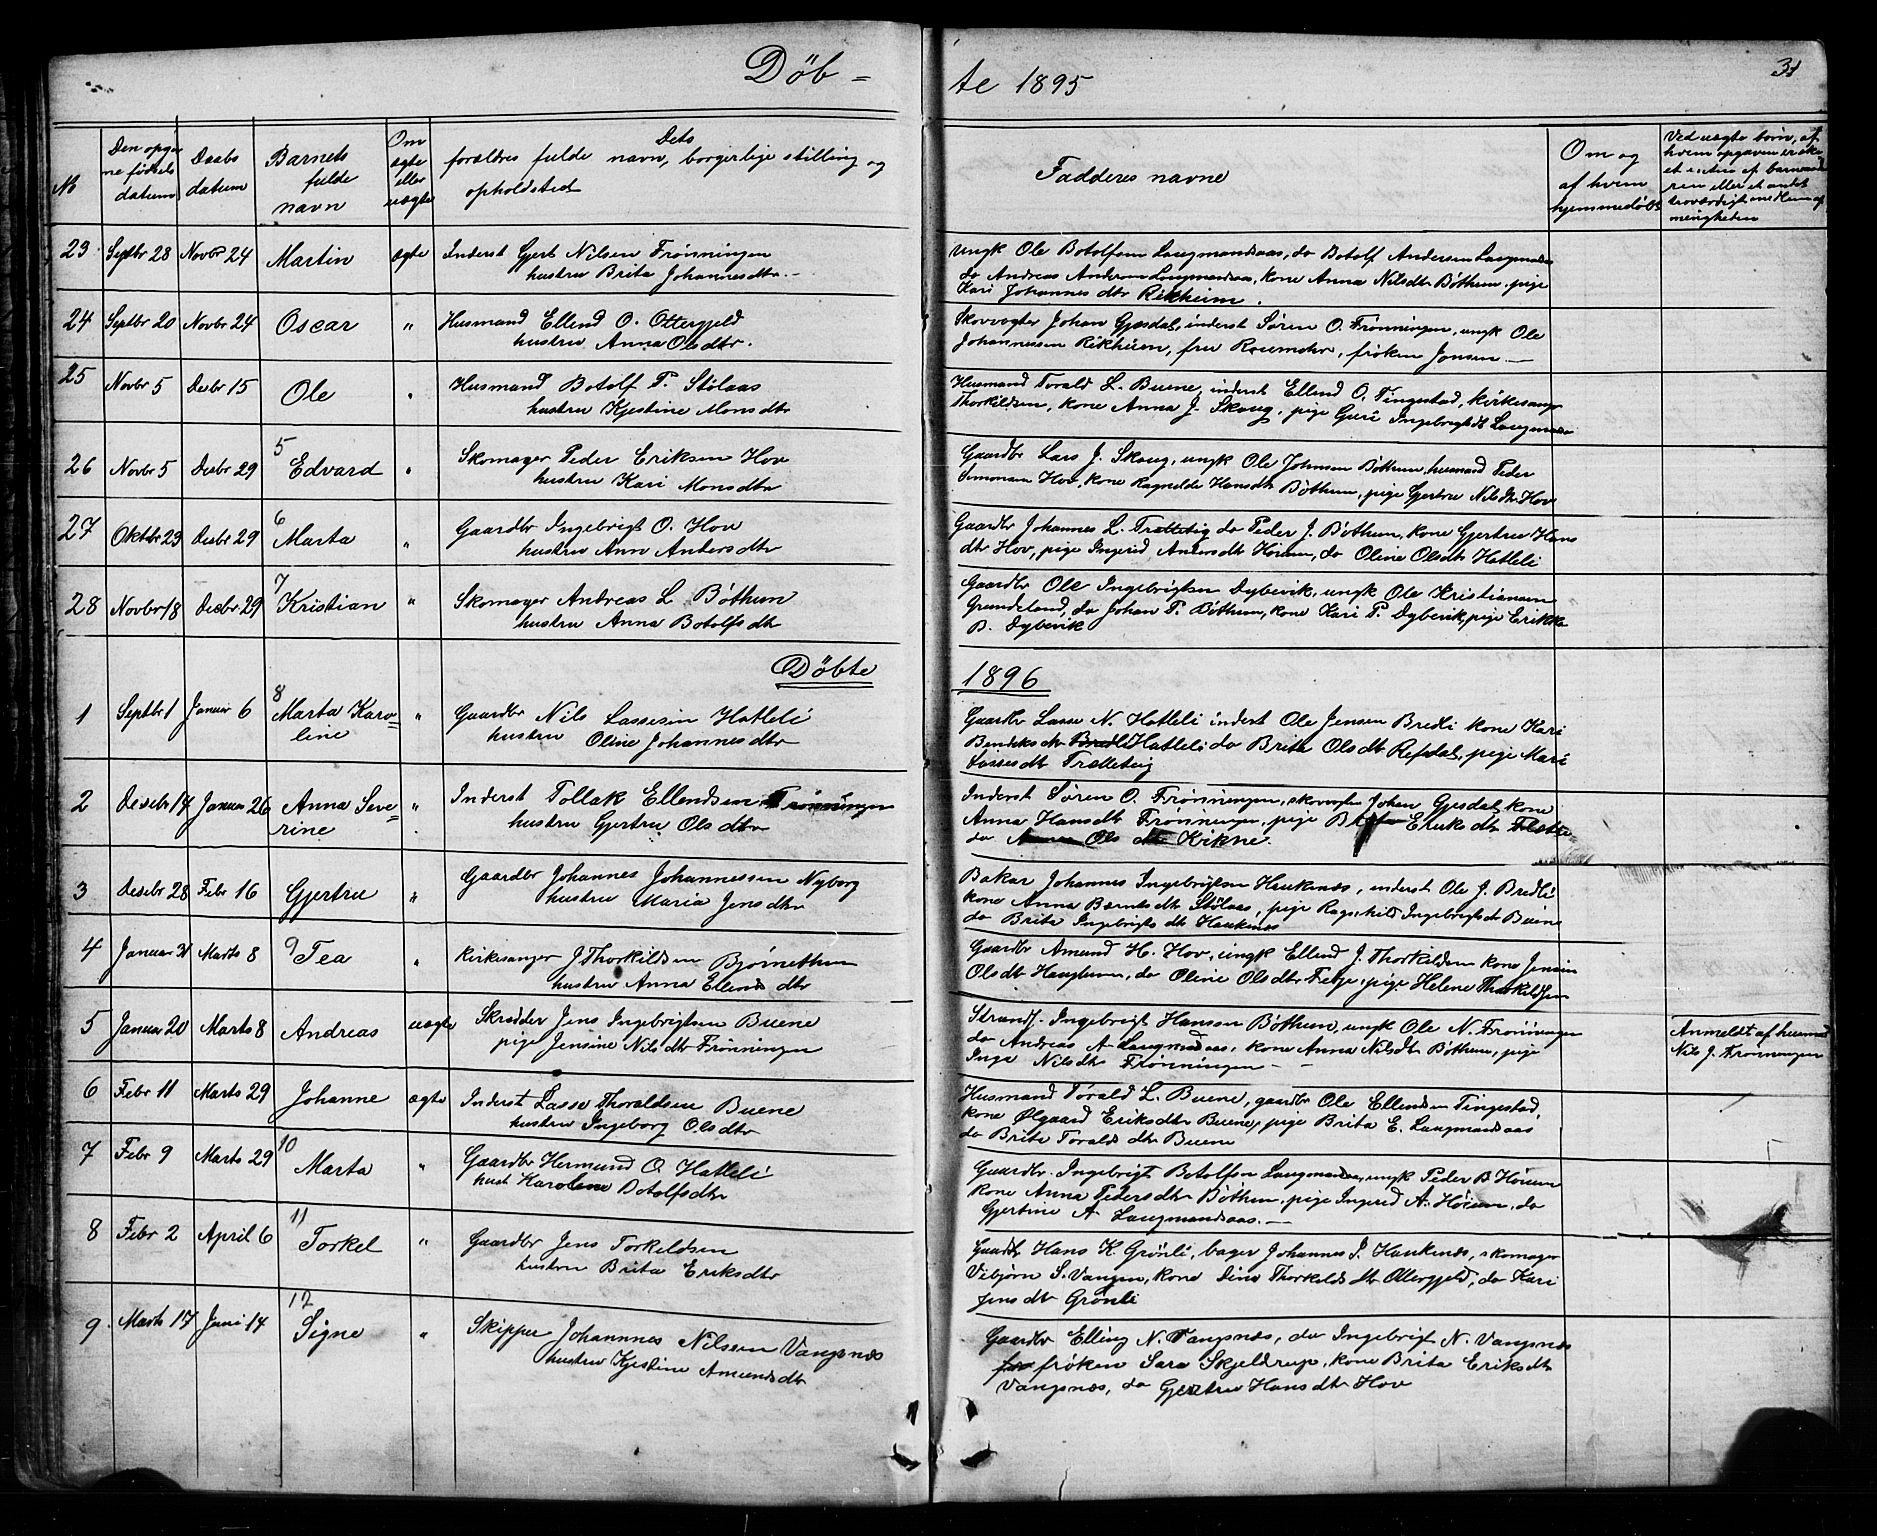 Döb = te 1895
31
No
Den opgivne fødsels datum
Daabs datum
Barnets fulde navn
Om ægte eller uægte
Dets forældres fulde navn, borgerlige stilling og opholdsted
Fadderes navne
Om og af hvem hjemmedøbt
Ved uægte børn, af hvem opgaven er
23 Septbr 28 Novbr 24 Martin ægte Inderst Gjert Nilsen Frønningen
hustru Brita Johannesdtr. —
ungk Ole Botolfsen Laugmandsaas, do Botolf Andersen Laugmandsaas
do Andreas Andersen Laugmandsaas, kone Anna Nilsdtr Bøthun, pige
Kari Johannesdtr Rikheim.
24 Septbr 20 Novbr 24 Oscar " Husmand Ellend O. Ottergjeld
hustru Anna Olsdtr.
Skovvogter Johan Gjesdal, inderst Søren O. Frønningen, ungk Ole
Johannessen Rikheim, fru frøken Jonsen —
25 Novbr 5 Desbr 15 Ole " Husmand Botolf P. Stølaas
hustru Kjestine Monsdtr
Husmand Torald L. Buene, inderst Ellend O. Tingestad, kirkesanger
Thorkildsen, kone Anna J. Skoug, pige Guri Ingebrigtdt Laugmandsaas
26 Novbr 5 Desbr 29 5 Edvard " Skomager Peder Eriksen Hov
hustru Kari Monsdtr
Gaardbr Lars J. Skoug, ungk Ole Johnsen Bøthun, husmand Peder
Simonsen Hov, kone Ragnilde Hansdtr Bøthun, pige Gjertru Nilsdtr Hov
27 Oktbr 23 Desbr 29 6 Marta " Gaardbr Ingebrigt O. Hov
hustru Ann Andersdtr
Gaardbr Johannes L. Trælleteig do Peder J. Bøthun, kone Gjertru Hans
dtr Hov, pige Ingrid Andersdtr Høium, do Oline Olsdtr Hatleli
28 Novbr 18 Desbr 29 7 Kristian " Skomager Andreas L Bøthun
hustru Anna Botolfsdtr
Gaardbr Ole Ingebrigtsen Dybevik, ungk Ole Kristiansen
Grundeland, do Johan P. Bøthun, kone Kari P. Dybevik, pige Erikka
B. Dybevik
Döbte 1896
1 Septbr 1 Januar 6 8 Marta Karo=
line " Gaardbr Nils Lassesen Hatleli
hustru Oline Johannesdtr
Gaardbr Lasse N. Hatleli inderst Ole Jensen Bredli kone Kari
Bendiksdtr Bredli Hatleli do Brita Olsdtr Refsdal, pige Mari
Lassesdtr Trælleteig
2 Desbr 14 Januar 26 Anna Seve=
rine " Inderst Tollak Ellendsen Frønningen
hustru Gjertru Olsdtr
Inderst Søren O. Frønningen, skovvogter Johan Gjesdal, kone
Anna Hansdtr Frønningen, pige Brita Eriksdtr
do Olsdtr Kirkne.
3 Desbr 28 Febr 16 Gjertru " Gaardbr Johannes Johannessen Nyborg
hustru Maria Jensdtr
Bakar Johannes Ingebrigtsen Haukenæs, inderst Ole J. Bredli
kone Anna Berntsdtr Stølaas, pige Ragnhild Ingebrigtsdtr Buene
do Brita Ingebrigtsdtr Haukenæs
4 Januar 31 Marts 8 9 Tea " Kirkesanger J Thorkildsen Bjørnethun
hustru Anna Ellendsdtr
Gaardbr Amund H. Hov, ungk Ellend J. Thorkildsen kone Jensin
Olsdtr Haugheim, do Oline Olsdtr Fetje, pige Helene Thorkildsen
5 Januar 20 Marts 8 Andreas uægte Skrædder Jens Ingebrigtsen Buene
pige Jensine Nilsdtr Frønningen
Strandf. Ingebrigt Hansen Bøthun, ungk Ole N. Frønningen
do Andreas A Laugmandsaas, kone Anna Nilsdtr Bøthun, pige
Inge Nilsdtr Frønningen —
Anmeldt af husmand
Nils J. Frønningen
6 Febr 11 Marts 29 Johanne ægte Inderst Lasse Thoraldsen Buene
hustru Ingeborg Olsdtr
Husmand Torald L. Buene, gaardbr Ole Ellendsen Tingestad,
kone Ølgaard Eriksdtr Buene, pige Brita E. Laugmandsaas
do Brita Toraldsdtr Buene
7 Febr 9 Marts 29 10 Marta " Gaardbr Hermund O. Hatleli
hust Karolene Botolfsdtr
Gaardbr. Ingebrigt Botolfsen Laugmandsaas, ungk Peder B Høium
kone Anna Pedersdtr Bøthun, pige Ingrid A. Høium, do
Gjertine A Laugmandsaas. —
8 Febr 2 April 6 11 Torkel " Gaardbr Jens Torkeldsen
hustru Brita Eriksdtr
Gaardb Hans K. Grönli, bager Johannes I. Haukenæs, skomager
Vibjørn S. Vangen, kone Sina Thorkildsdtr Ottergjeld, do Kari
Jensdtr Grönli
9 Marts 17 Juni 14 12 Signe " Skipper Johannes Nilsen Vangsnæs
hustru Kjestine Amundsdtr
Gaardbr Elling N. Vangsnæs, do Ingebrigt N. Vangsnæs
frøken Sara Skjeldrup, kone Brita Eriksdtr
Vangsnæs, do Gjertru Hansdtr Hov